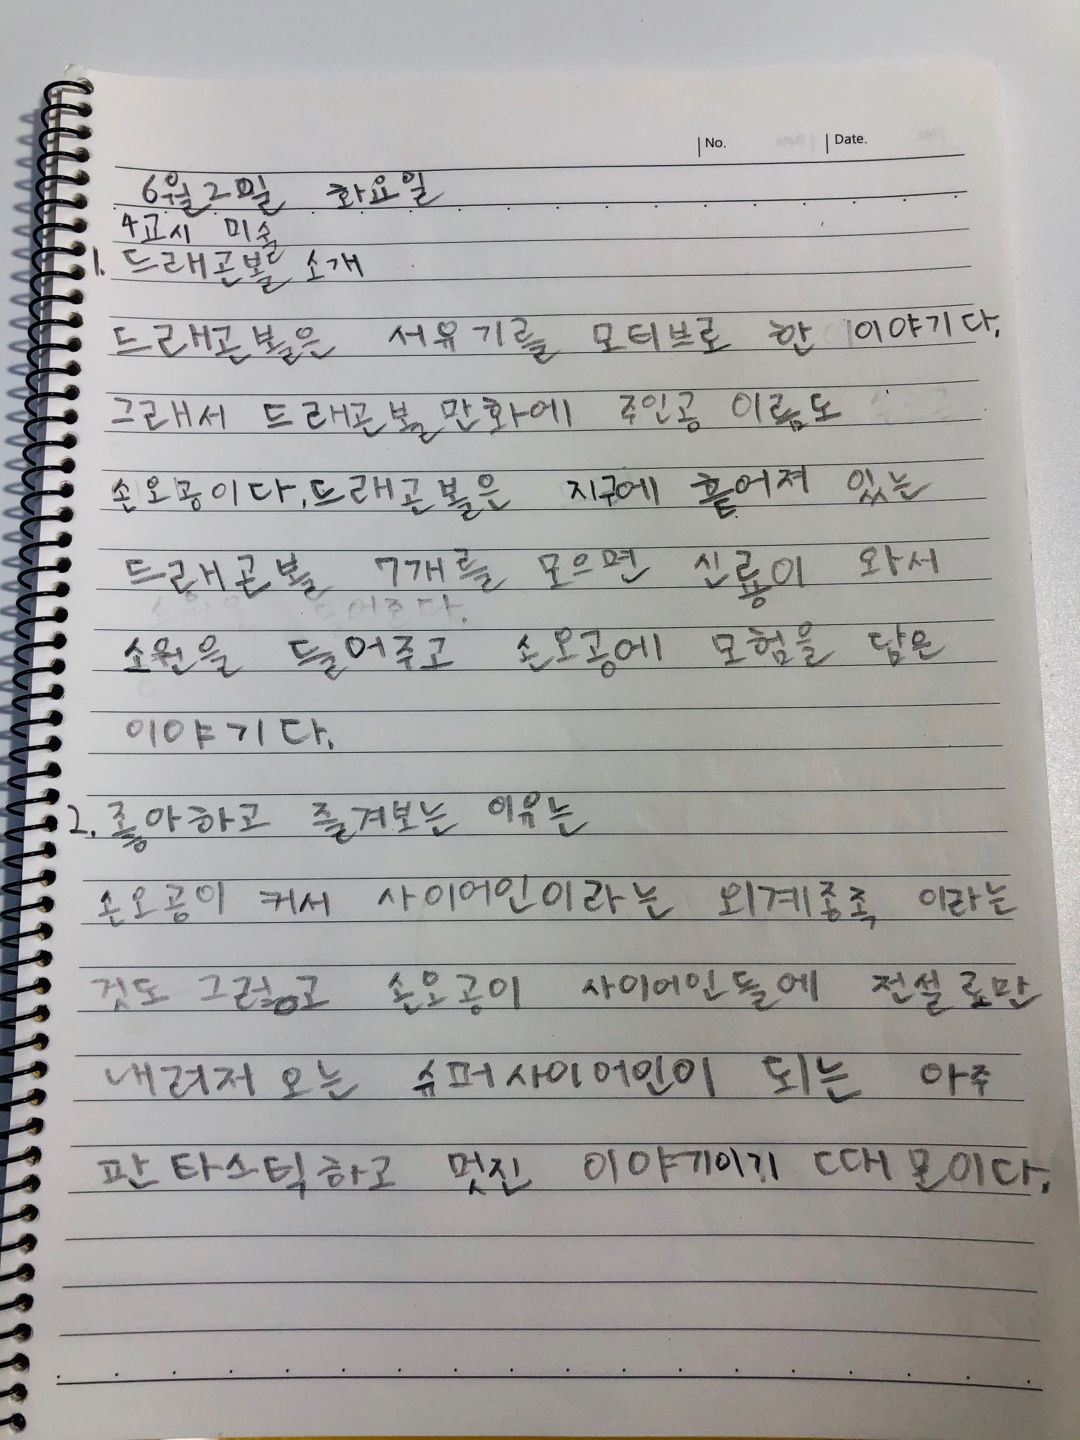 No. Date.
6월20일 화요일
4교시 미술
1. 드래곤볼 소개
드래곤볼은 서유기를 모티브로 한 이야기다.
그래서 드래곤볼만화에 주인공 이름도
손오공이다.드래곤볼은 지구에 흩어져 있는
드래곤볼 7개를 모으면 신룡이 와서
소원을 들어주고 손오공에 모험을 담은
이야기다.
2. 좋아하고 즐겨보는 이유는
손오공이 커서 사이어인이라는 외계종족 이라는
것도 그렇고 손오공이 사이어인들에 전설로만
내려저 오는 슈퍼사이어인이 되는 아주
판타스틱하고 멋진 이야기이기 때문이다.